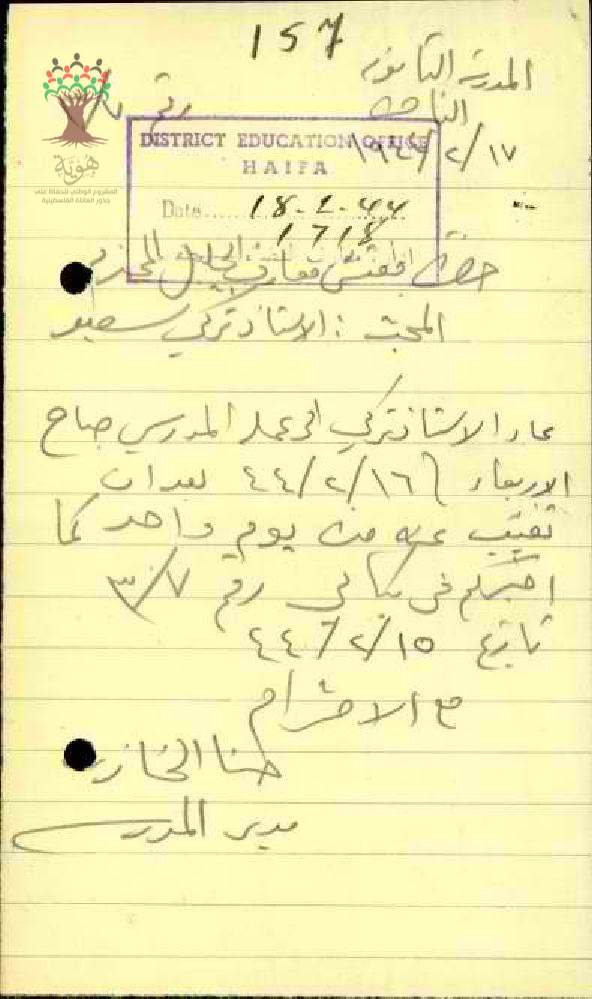 157
المدرسة الثانوية
الناصرة
رقم
١٩٤٤/٢/١٧
هوية
المشروع الوطني للحفاظ على
جذور العائلة الفلسطينية
DISTRICT EDUCATION OFFICE
HAIFA
Date..... 18-2-44
1718
حضرة مفتش معارف الجليل المحترم
المبحث : الاستاذ تركي سعيد
عاد الاستاذ تركي الى عمله المدرسي صباح
الاربعاء ٤٤/٢/١٦ بعد ان
تغيب عنه مدة يوم واحد كما
اخبرتكم في كتابي رقم ٣/٧
تاريخ ٤٤/٢/١٥
مع الاحترام
حنا الخازن
مدير المدرسة